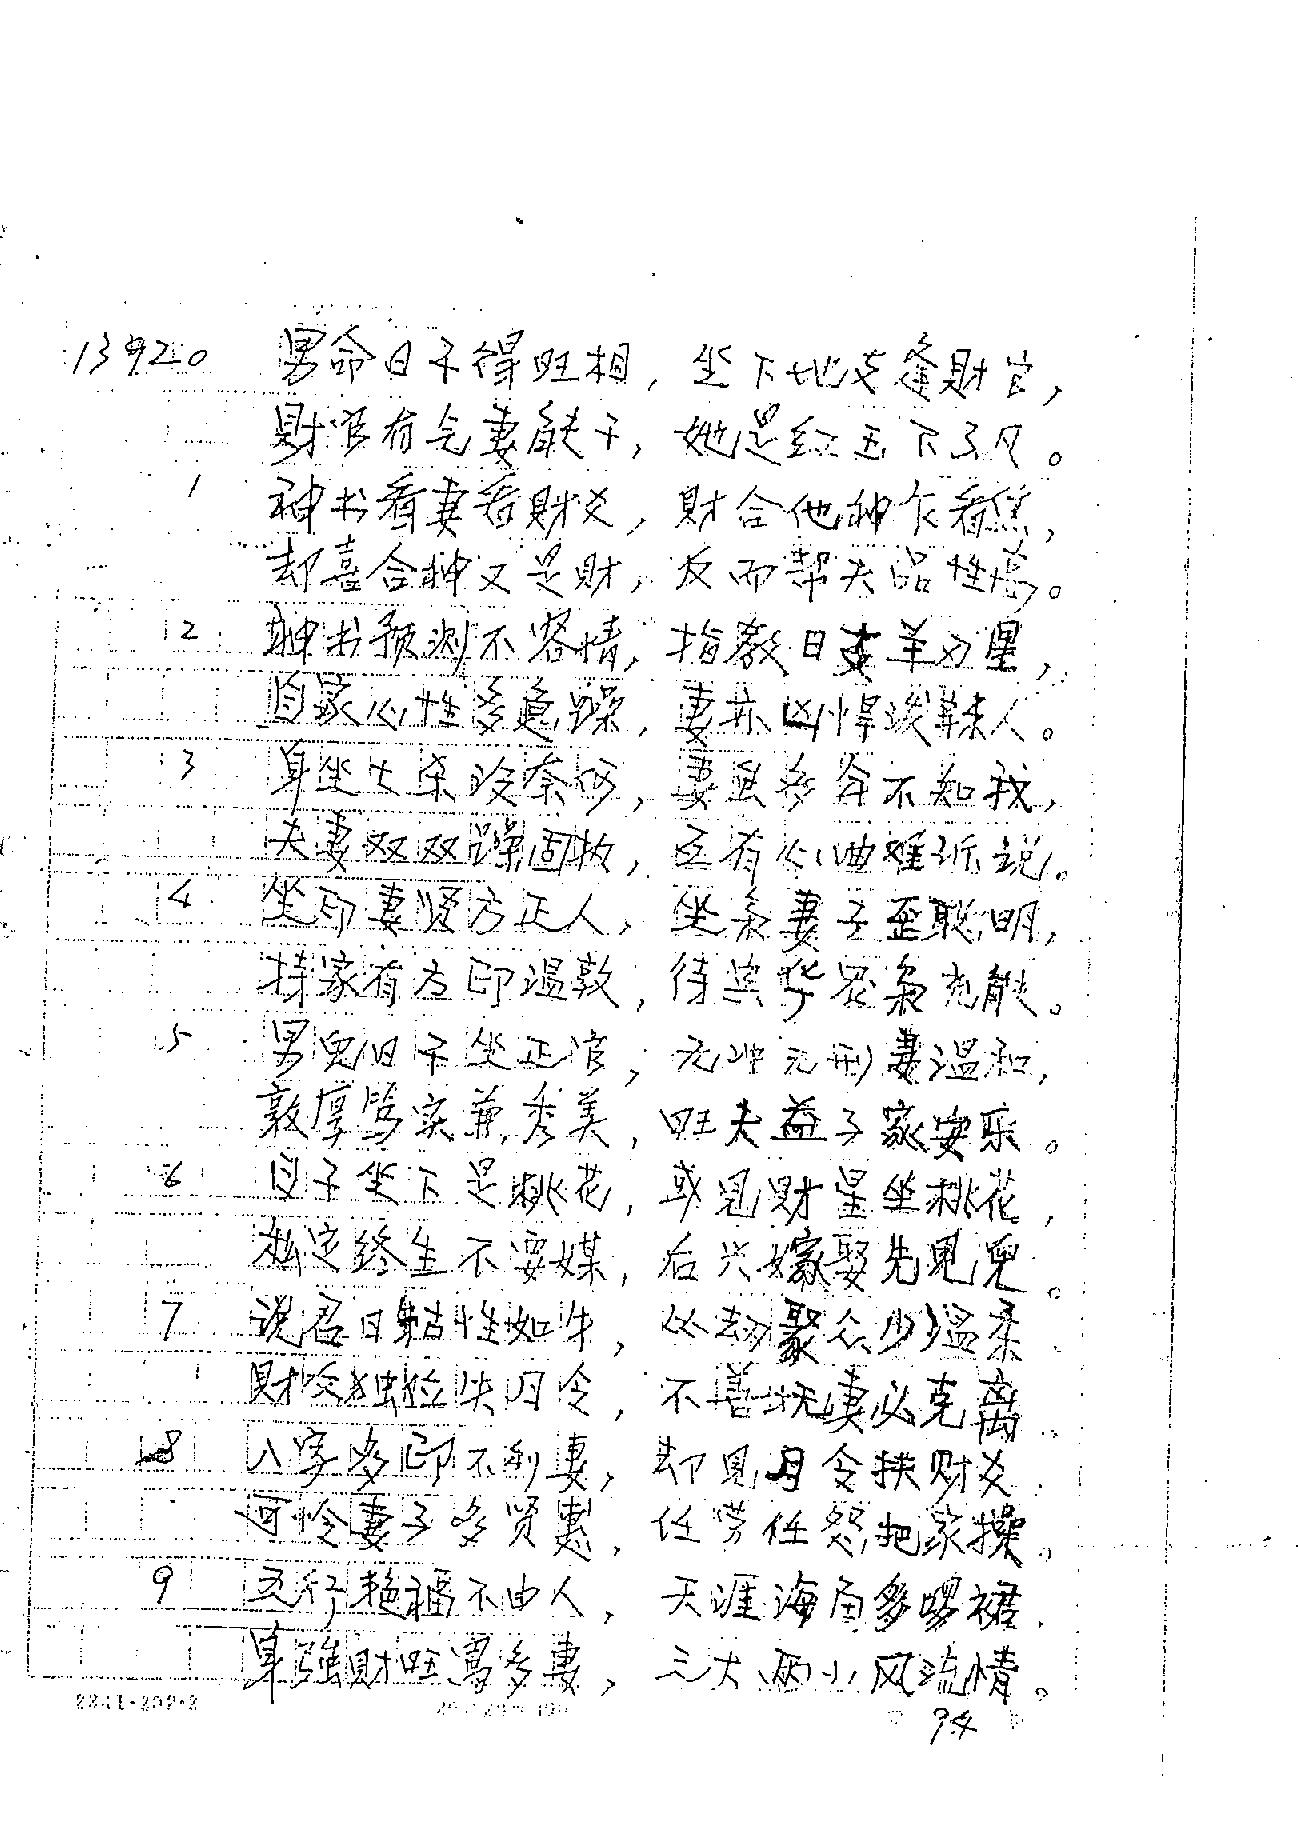 13920 男命日干得旺相，坐下地支逢財官，
財官有气妻能干，她是红玉下了凡。
1 神书看妻看財爻，財合他神乍看焦，
却喜合神又是財，反而帮夫品性高。
2 神书预测不容情，指教日支羊刃星，
自家心性多急躁，妻亦凶悍泼辣人。
3 身坐七杀没奈何，妻虽多 不知我，
夫妻双双躁固执，互有心曲难诉说。
4 坐印妻贤方正人，坐枭妻子歪聪明，
持家有方印温敦，待 枭尤能。
5 男儿日干坐正官，无冲无刑妻温和，
敦厚笃实兼秀美，旺夫益子家安乐。
6 日干坐下是桃花，或见财星坐桃花，
私定终生不要媒，后兴嫁娶先見児。
7 说君日 性如牛，比劫聚众少温柔
財 独 失月令，不善 妻必克离
8 八字多印不利妻，却見月令扶财爻
可怜妻子多贤惠，任劳任怨把家操。
9 五行艳福不由人，天涯海角多 裙.
身強財旺寓多妻，三大两小风流情。
2241·202·2
94